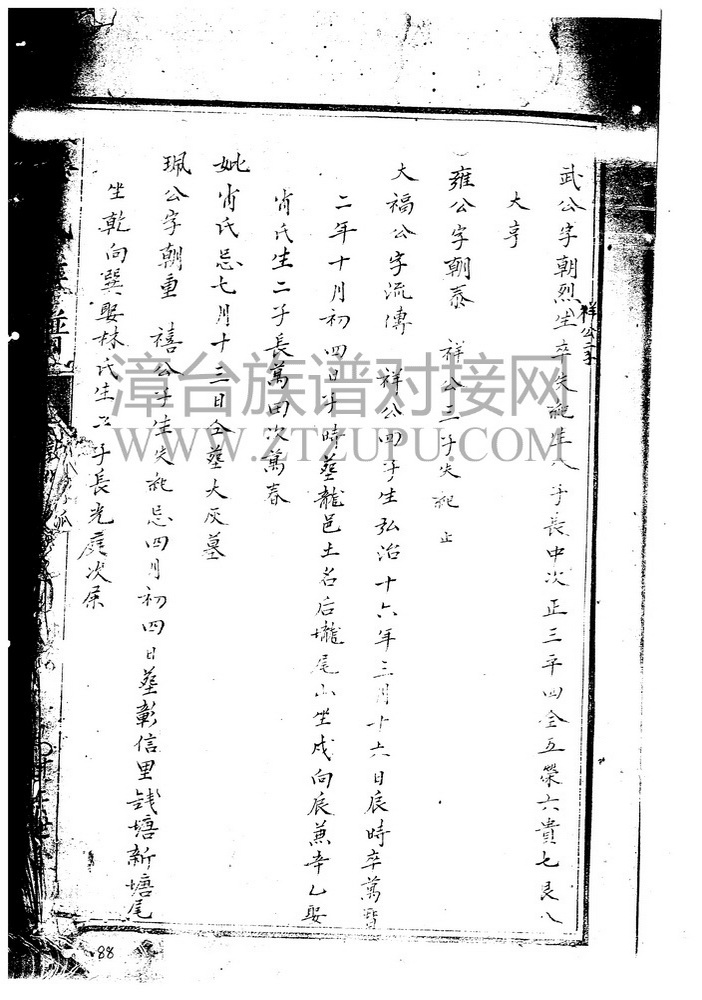 武公字朝烈生卒失紀生八子長中次正三平四全五榮六貴七良八
祥公二子
大亨
雍公字朝泰 祥公三子失紀 止
大福公字流傳 祥公四子生弘治十六年三月十六日辰時卒萬曆
二年十月初四日子時葬龍邑土名后壠尾山坐戌向辰兼辛乙娶
肖氏生二子長萬田次萬春
妣肖氏忌七月十三日合葬大灰墓
珮公字朝重 禧公子生失紀忌四月初四日葬彰信里錢塘新塘尾
坐乾向巽娶林氏生二子長光庭次
漳台族谱对接网
WWW.ZTZUPU.COM
88